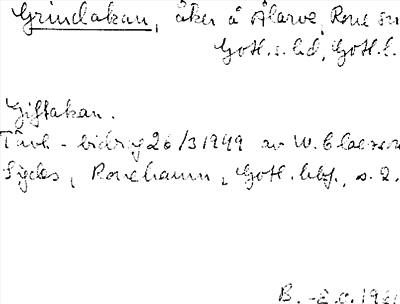 Grindakan, åker å Ålarve, Rone sn
Gotl. s. hd, Gotl. l.
Giftakan.
Tävl-bidrag 26/3 1949 av W. Claeson
Sydes, Ronehamn, Gotl. hbf., s. 2.
B.